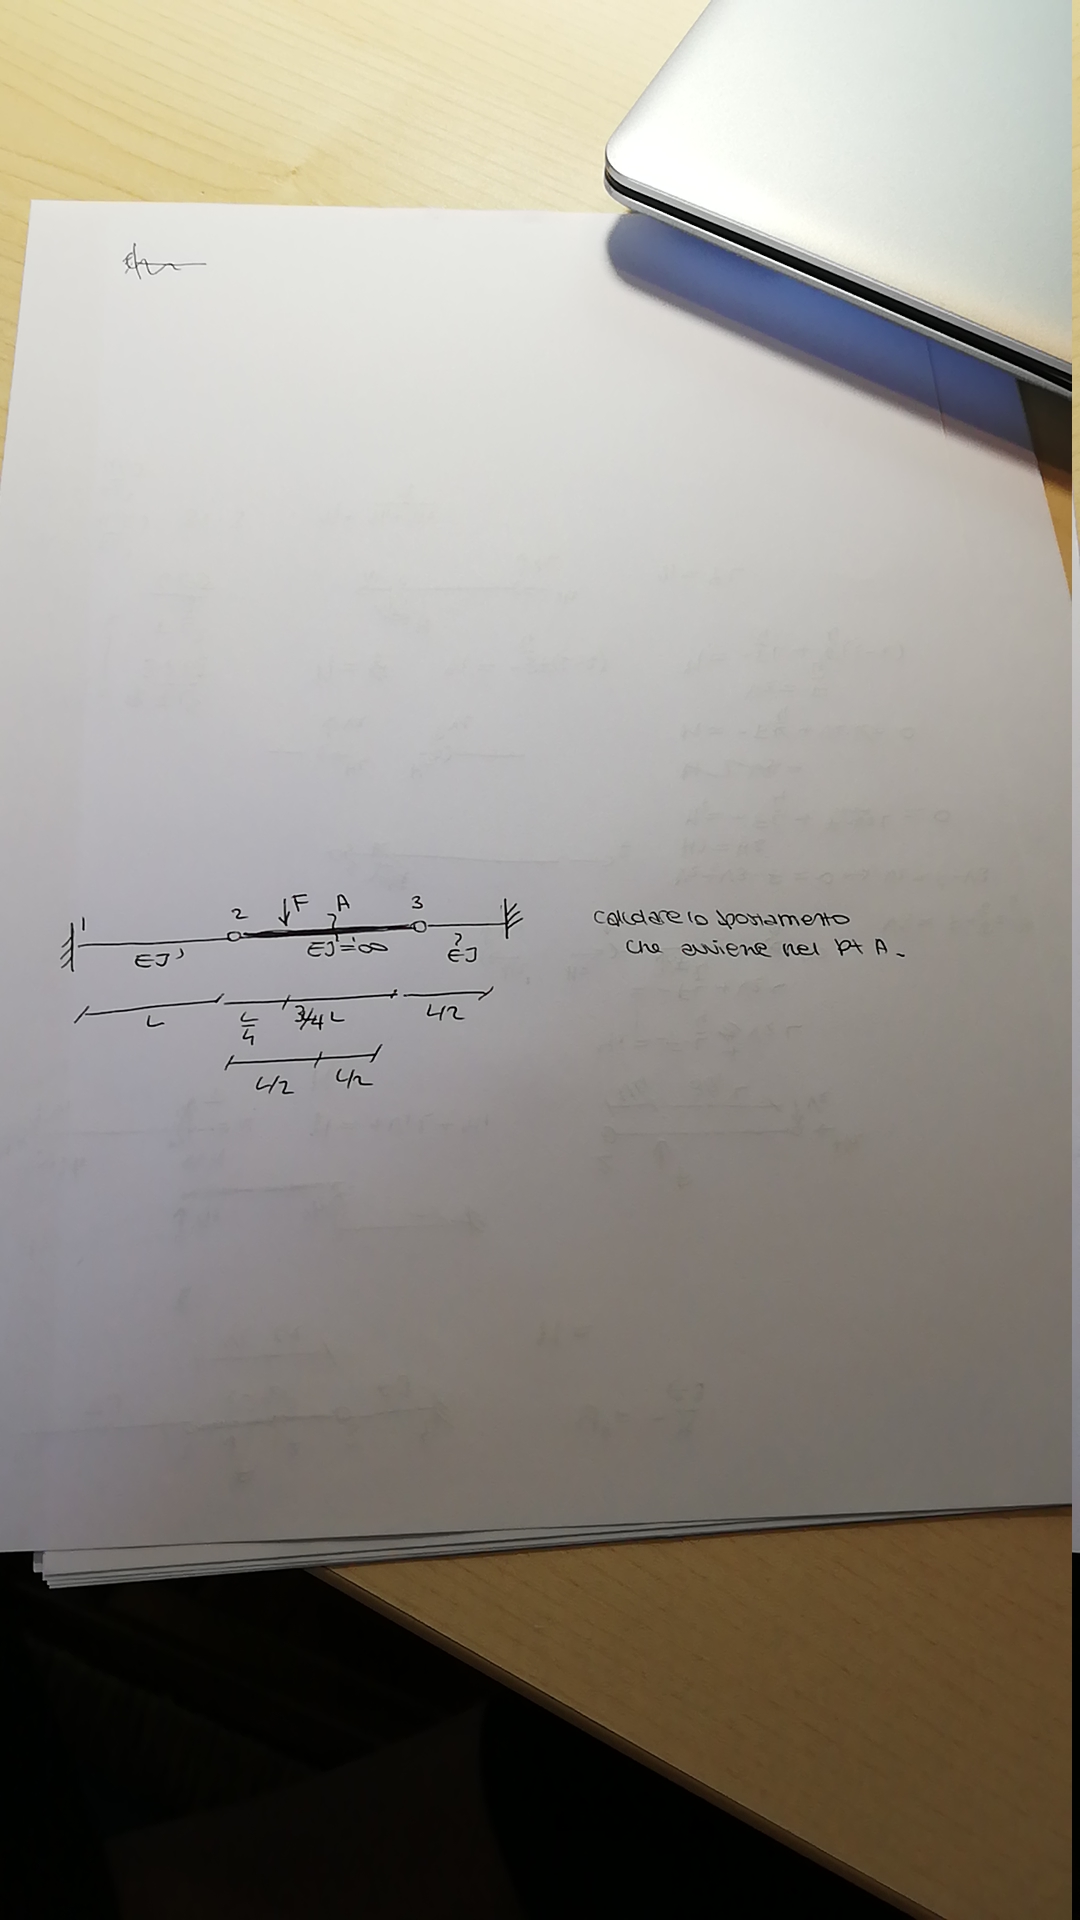 1
2
F
A
3
EJ
EJ=∞
EJ
L
L/4
3/4 L
L/2
L/2
L/2
calcolare lo spostamento
che avviene nel pt A.